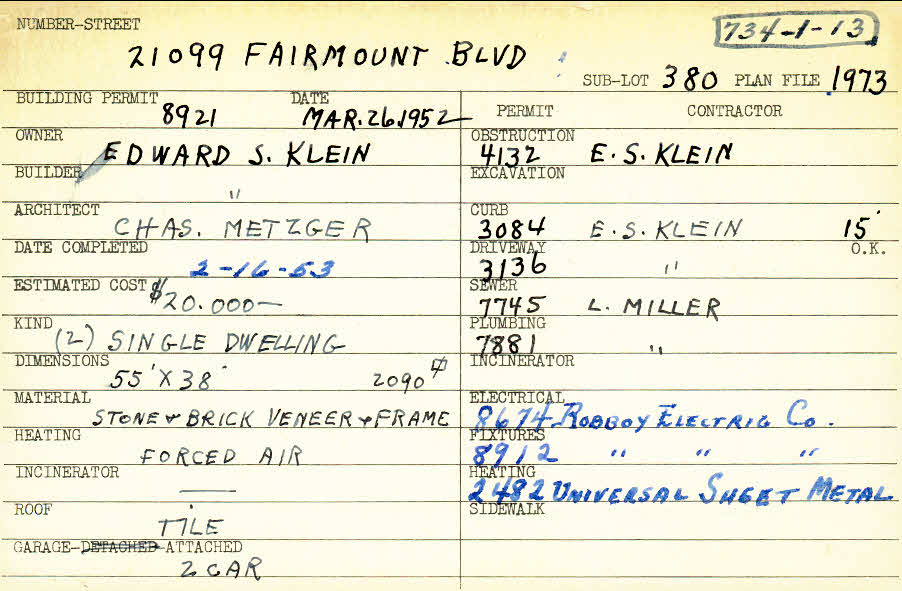 NUMBER-STREET
734-1-13
21099 FAIRMOUNT BLVD
SUB-LOT 380 PLAN FILE 1973
BUILDING PERMIT DATE
8921 MAR. 26. 1952
OWNER
EDWARD S. KLEIN
BUILDER
"
ARCHITECT
CHAS. METZGER
DATE COMPLETED
2-16-53
ESTIMATED COST $20.000—
KIND
(2) SINGLE DWELLING
DIMENSIONS
55' X 38' 2090
MATERIAL
STONE & BRICK VENEER & FRAME
HEATING
FORCED AIR
INCINERATOR
—
ROOF
TILE
GARAGE-DETACHED-ATTACHED
2 CAR
PERMIT CONTRACTOR
OBSTRUCTION
4132 E. S. KLEIN
EXCAVATION
CURB
3084 E. S. KLEIN 15'
DRIVEWAY O.K.
3136 "
SEWER
7745 L. MILLER
PLUMBING
7881 "
INCINERATOR
ELECTRICAL
8674 ROBBOY ELECTRIC Co.
FIXTURES
8912 " " "
HEATING
2482 UNIVERSAL SHEET METAL
SIDEWALK